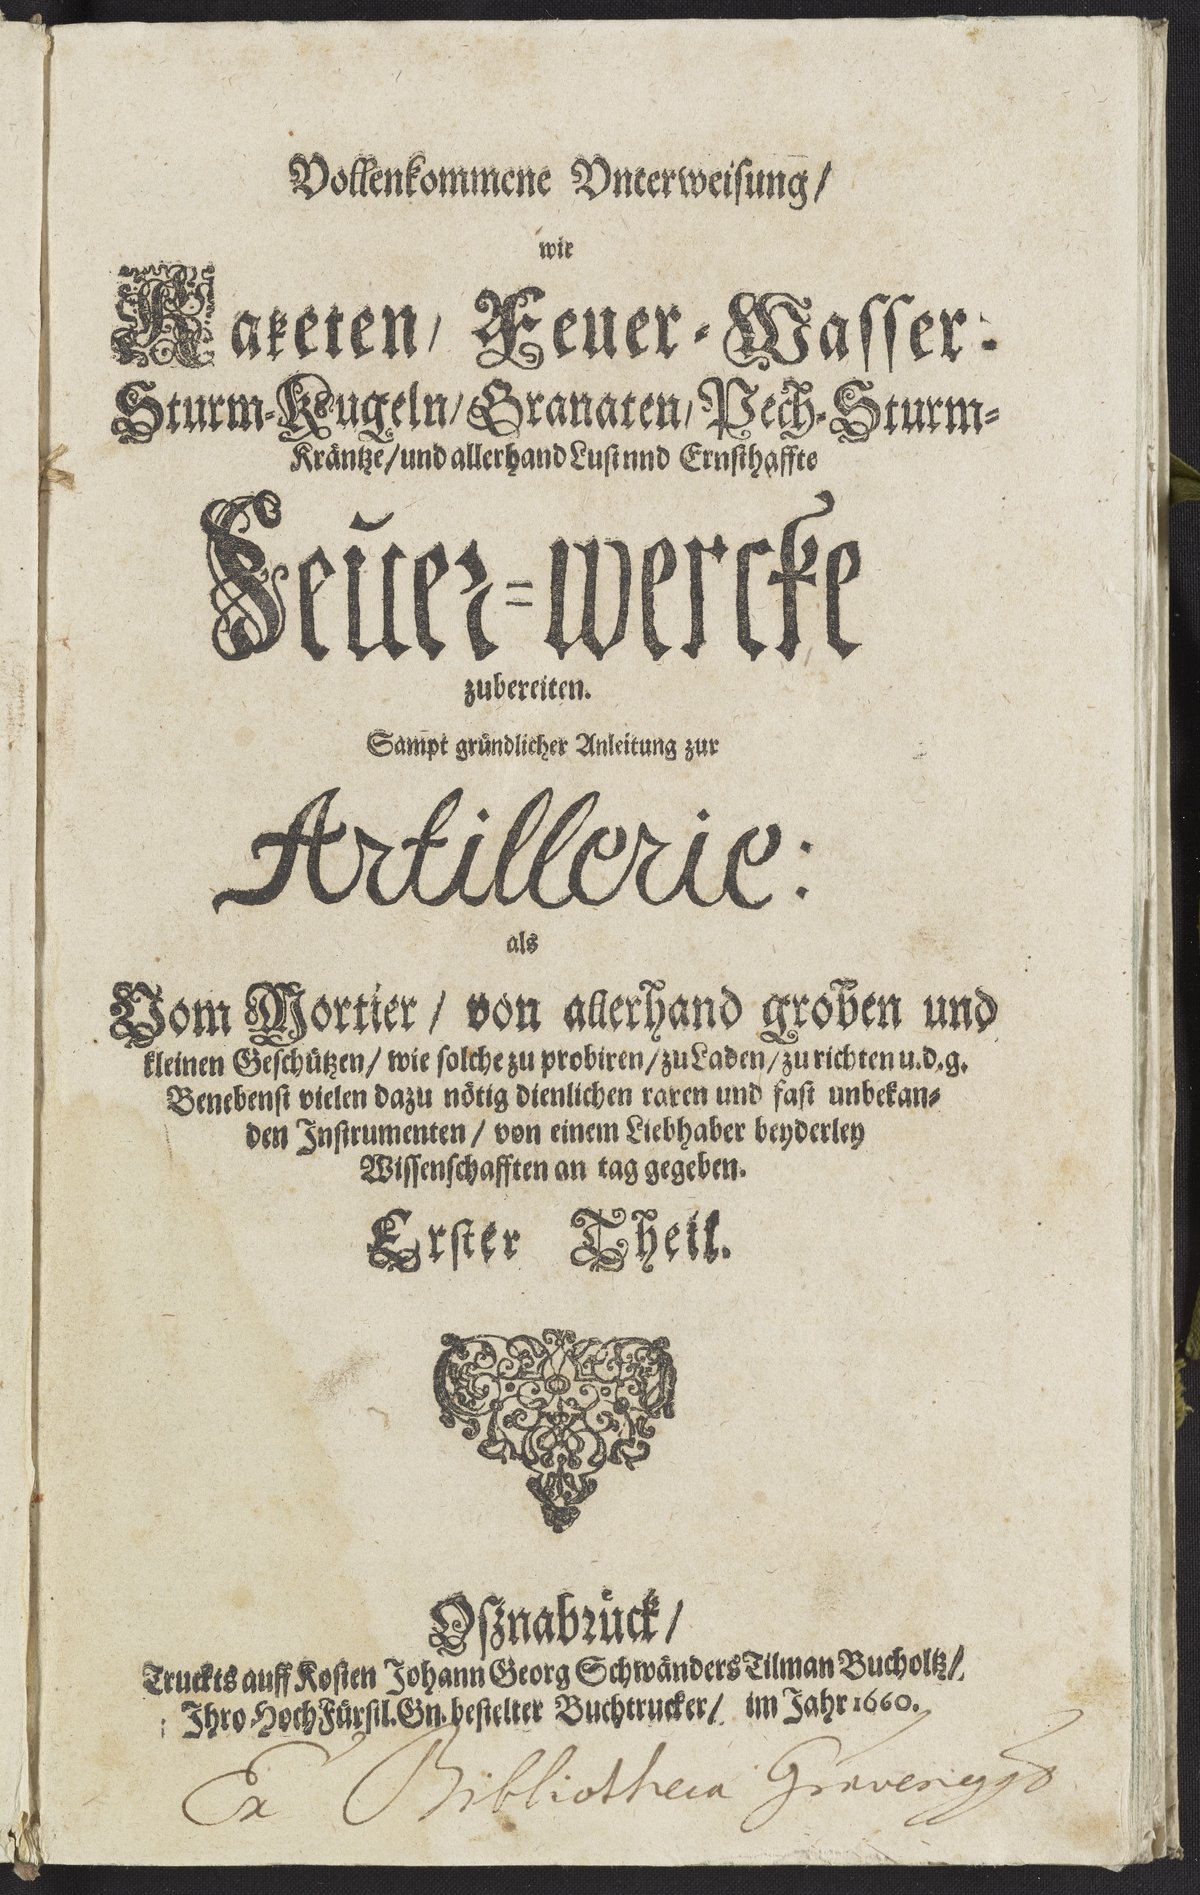 Vollenkommene Vnterweisung/
wie
Raketen/ Feuer-Wasser:
Sturm-Kugeln/Granaten/Pech-Sturm-
Kräntze/und allerhand Lust nnd Ernsthaffte
Feuer-wercke
zubereiten.
Sampt gründlicher Anleitung zur
Artillerie:
als
Vom Mortier/ von allerhand groben und
kleinen Geschützen/ wie solche zu probiren/zu Laden/zu richten u.d.g.
Benebenst vielen dazu nötig dienlichen raren und fast unbekan-
den Instrumenten/ von einem Liebhaber beyderley
Wissenschafften an tag gegeben.
Erster Theil.
Oßnabrück/
Truckts auff Kosten Johann Georg Schwänders Tilman Bucholtz/
Ihro-HochFürstl.Gn.bestelter Buchtrucker/ im Jahr 1660.
Ex Bibliotheca